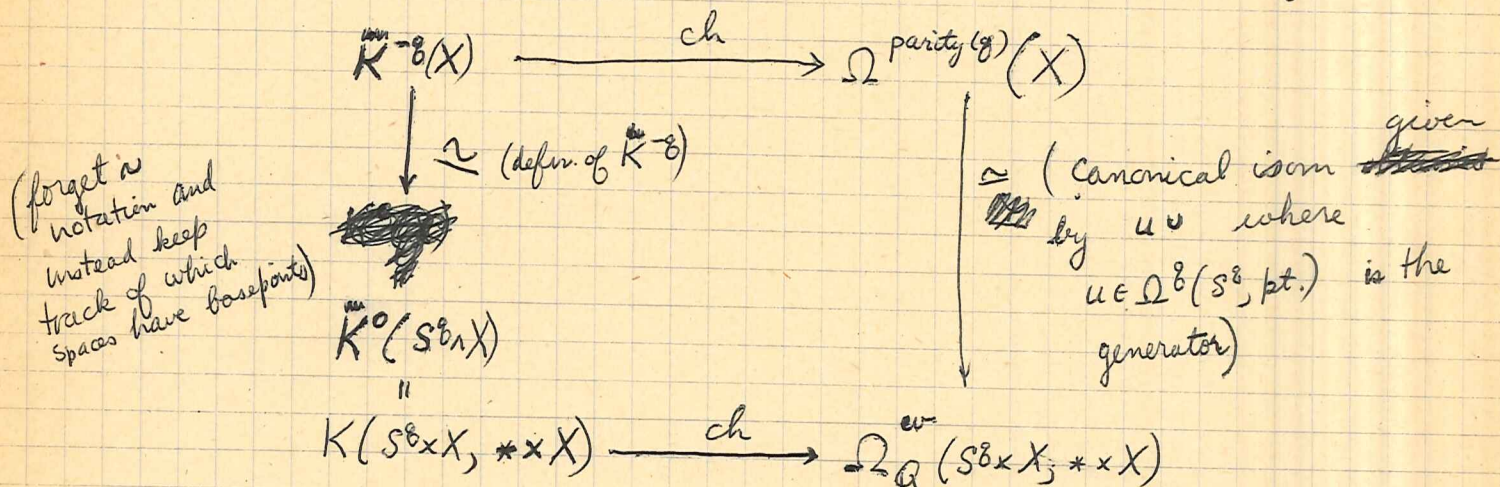 K̃^{-q}(X) ch Ω^{parity(q)}(X)
≃ (defn. of K̃^{-q})
(forget ~
notation and
instead keep
track of which
spaces have basepoints)
≃ (canonical isom given
by u ∪ where
u ∈ Ω^q(S^q, pt.) is the
generator)
K̃^0(S^q ∧ X)
=
K(S^q × X, * × X) ch Ω_Q^{ev}(S^q × X, * × X)